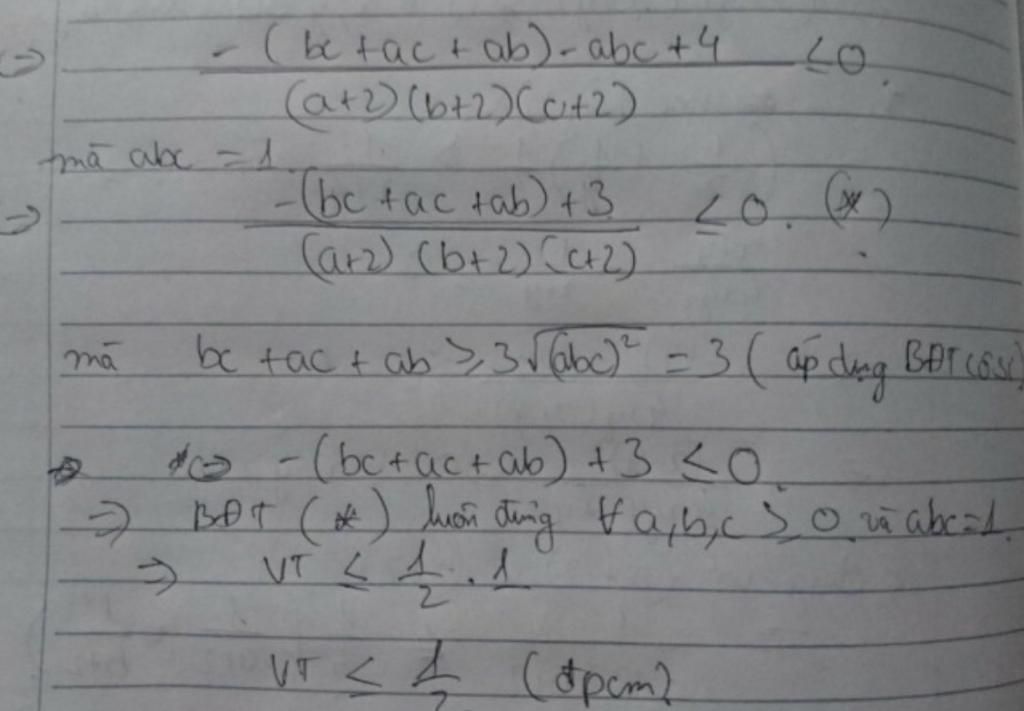 ⇒ -(bc + ac + ab) - abc + 4 / (a+2)(b+2)(c+2) ≤ 0.
mà abc = 1
⇒ -(bc + ac + ab) + 3 / (a+2)(b+2)(c+2) ≤ 0. (*)
mà bc + ac + ab ≥ 3√(abc)² = 3 (áp dụng BĐT côsi)
*⇔ -(bc + ac + ab) + 3 ≤ 0.
⇒ BĐT (*) luôn đúng ∀ a,b,c ≥ 0 và abc=1.
⇒ VT ≤ 1/2 . 1
VT ≤ 1/2 (đpcm)